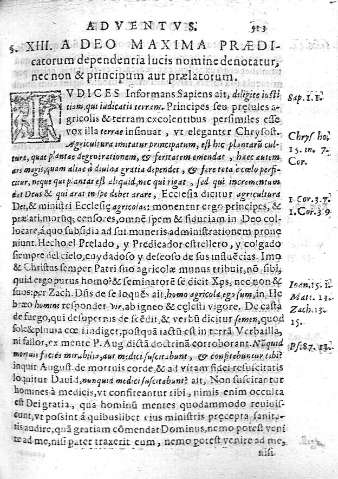 ADVENTVS. 913
§. XIII. A DEO MAXIMA PRÆDI-
catorum dependentia lucis nomine denotatur,
nec non & principum aut prælatorum.
IVDICES Informans Sapiens ait, diligite iusti
tiam, qui iudicatis terram. Principes seu presules a-
gricolis & terram excolentibus persimiles esse
vox illa terrae insinuat, vt eleganter Chrysost.
Agricultura imitatur principatum, est hic plantarũ cul
tura, quae plantae degenerationem, & feritatem emendat, haec autem
magis, quam alia à diuina gratia dependet, & fere tota caelo perfi-
citur, neque qui plantat est aliquid, nec qui rigat, sed qui incrementum
dat Deus & qui arat in spe debet arare. Ecclesia dicitur agricultura
Dei, & ministri Ecclesiæ agricolae: monenter ergo principes, &
omnẽ spem & fiduciam in Deo collo
care, à quo subsidia ad sui muneris administrationem prone
niunt. Hecho el Prelado, y Predicador estellero, y colgado
siempre del cielo, cuydadoso y desseoso de sus influẽcias. Im
& Christus semper Patri suo agricolæ munus tribuit, nõ sibi,
quid ergo purus homo & seminator è se dicit Xps, nec non &
suos: per Zach. Dñs de se loquẽs ait, homo agricola ego sum, in He
bræo homo respondet ver, ab igneo & cælesti vigore. De casta
de fuego, qui desuper in se redijt & verbũ dicitur semen, quod
sole & pluuia cœli indiget, postquã iactũ est in terrã Verba illa,
ni fallor, ex mente P. Aug dicta doctrinã corroborant. Nũquid
monui facies mirabilia, aut medici suscitabunt, & confitebuntur tibi?
inquit August. de mortuis corde & ad vitam fidei resuscitatis
loquitur Dauid, nunquid medici suscitabunt? ait, Non suscitantur
homines à medicis, vt confiteantur tibi, nimis enim occulta
est Dei gratia, qua hominũ mentes quodammodo reuiuis-
cunt, vt possint à quibuslibet eius ministris præcepta, sanita-
tis audire, quã gratiam cõmendat Dominus, nemo potest veni
re ad me, nisi pater traxerit eum, nemo potest venire ad me,
nisi
Sap. 1. E.
Chrys ho.
15. in 7.
Cor.
1. Cor. 3. 7.
1. Cor. 3 9
Ioan. 15. 1.
Matt. 13.
Zach. 13.
15.
Ps. 87. 13.